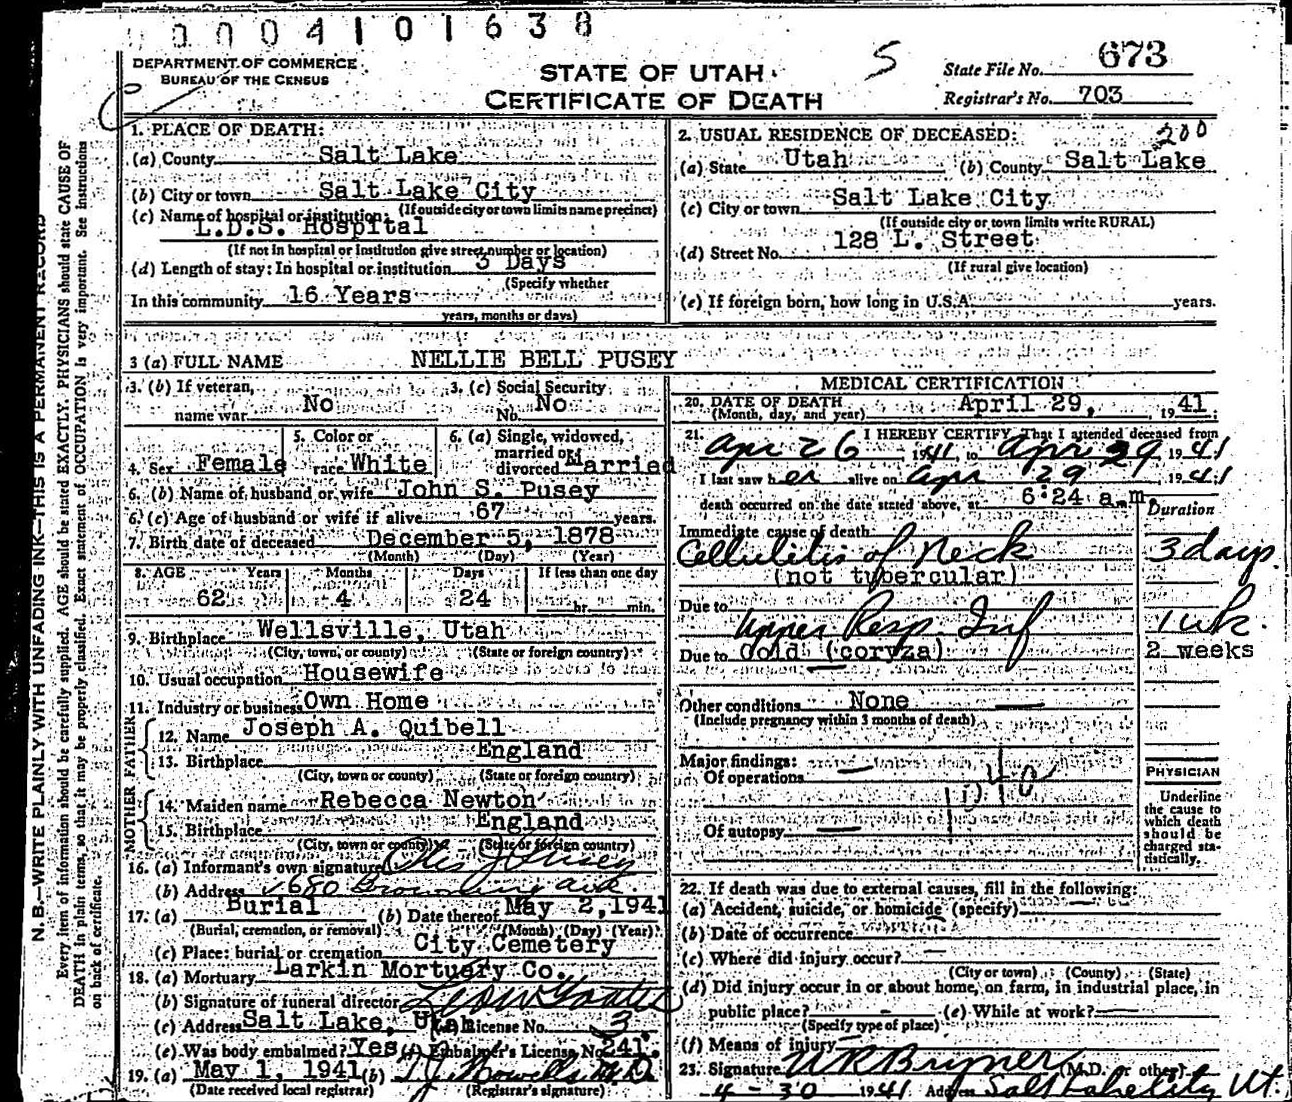 0004101638
DEPARTMENT OF COMMERCE
BUREAU OF THE CENSUS
STATE OF UTAH
CERTIFICATE OF DEATH
S
State File No. 673
Registrar's No. 703
N. B.—WRITE PLAINLY WITH UNFADING INK—THIS IS A PERMANENT RECORD
Every item of information should be carefully supplied. AGE should be stated EXACTLY. PHYSICIANS should state CAUSE OF
DEATH in plain terms, so that it may be properly classified. Exact statement of OCCUPATION is very important. See instructions
on back of certificate.
1. PLACE OF DEATH:
(a) County Salt Lake
(b) City or town Salt Lake City
(If outside city or town limits name precinct)
(c) Name of hospital or institution:
L.D.S. Hospital
(If not in hospital or institution give street number or location)
(d) Length of stay: In hospital or institution 3 Days
(Specify whether
In this community 16 Years
years, months or days)
2. USUAL RESIDENCE OF DECEASED: 200
(a) State Utah (b) County Salt Lake
(c) City or town Salt Lake City
(If outside city or town limits write RURAL)
(d) Street No. 128 L. Street
(If rural give location)
(e) If foreign born, how long in U.S.A. years.
3 (a) FULL NAME NELLIE BELL PUSEY
3. (b) If veteran, name war No
3. (c) Social Security No. No
4. Sex Female
5. Color or race White
6. (a) Single, widowed, married or divorced Married
6. (b) Name of husband or wife John S. Pusey
6. (c) Age of husband or wife if alive 67 years.
7. Birth date of deceased December 5, 1878
(Month) (Day) (Year)
8. AGE Years Months Days If less than one day
62 4 24 hr. min.
9. Birthplace Wellsville, Utah
(City, town, or county) (State or foreign country)
10. Usual occupation Housewife
11. Industry or business Own Home
FATHER
12. Name Joseph A. Quibell
13. Birthplace England
(City, town or county) (State or foreign country)
MOTHER
14. Maiden name Rebecca Newton
15. Birthplace England
(City, town or county) (State or foreign country)
16. (a) Informant's own signature Otis J Pusey
(b) Address 1680 Browning ave.
17. (a) Burial (b) Date thereof May 2, 1941
(Burial, cremation, or removal) (Month) (Day) (Year)
(c) Place: burial or cremation City Cemetery
18. (a) Mortuary Larkin Mortuary Co.
(b) Signature of funeral director
(c) Address Salt Lake, Utah License No. 3.
(e) Was body embalmed? Yes Embalmer's License No. 241.
19. (a) May 1, 1941 (b)
(Date received local registrar) (Registrar's signature)
MEDICAL CERTIFICATION
20. DATE OF DEATH
(Month, day, and year) April 29, 1941
21. I HEREBY CERTIFY, That I attended deceased from
Apr 26 1941, to April 29 1941
I last saw her alive on Apr 29 1941
death occurred on the date stated above, at 6:24 a.m.
Duration
Immediate cause of death
Cellulitis of Neck 3 days
(not tubercular)
Due to Upper Resp. Inf 1 wk.
Due to Cold (coryza) 2 weeks
Other conditions None
(Include pregnancy within 3 months of death)
Major findings:
Of operations —
Of autopsy —
PHYSICIAN
Underline
the cause to
which death
should be
charged sta-
tistically.
22. If death was due to external causes, fill in the following:
(a) Accident, suicide, or homicide (specify) —
(b) Date of occurrence
(c) Where did injury occur? —
(City or town) (County) (State)
(d) Did injury occur in or about home, on farm, in industrial place, in
public place? — (e) While at work? —
(Specify type of place)
(f) Means of injury —
23. Signature W R Bryner (M.D. or other)
4-30 1941 Address Salt Lake City Ut.